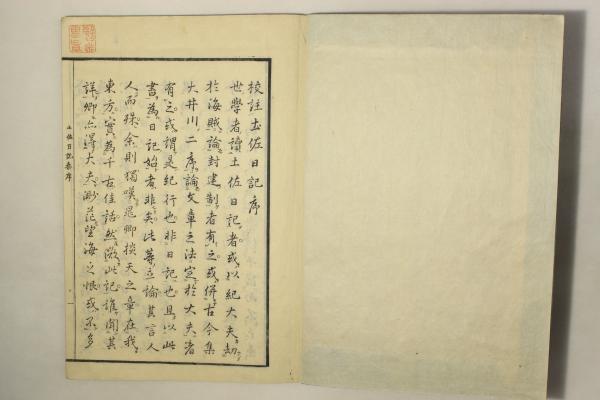 校註土佐日記序
世學者讀土佐日記者或以紀大夫劫
於海賊論封建制者有之或併古今集
大井川二序論文章之法宣於大夫者
有之或謂是紀行也非日記也且以此
書為日記始者非矣此等立論其言人
人而殊余則獨嘆晁卿掞天之章在我
東方實為千古佳話然微此記誰聞其
詳卿亦得大夫渺茫望海之恨或不多
土佐日記卷序
一